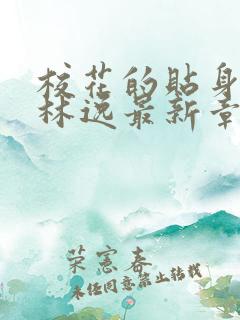 校花的贴身
林逸最新章
荣宪春
未经同意禁止转载